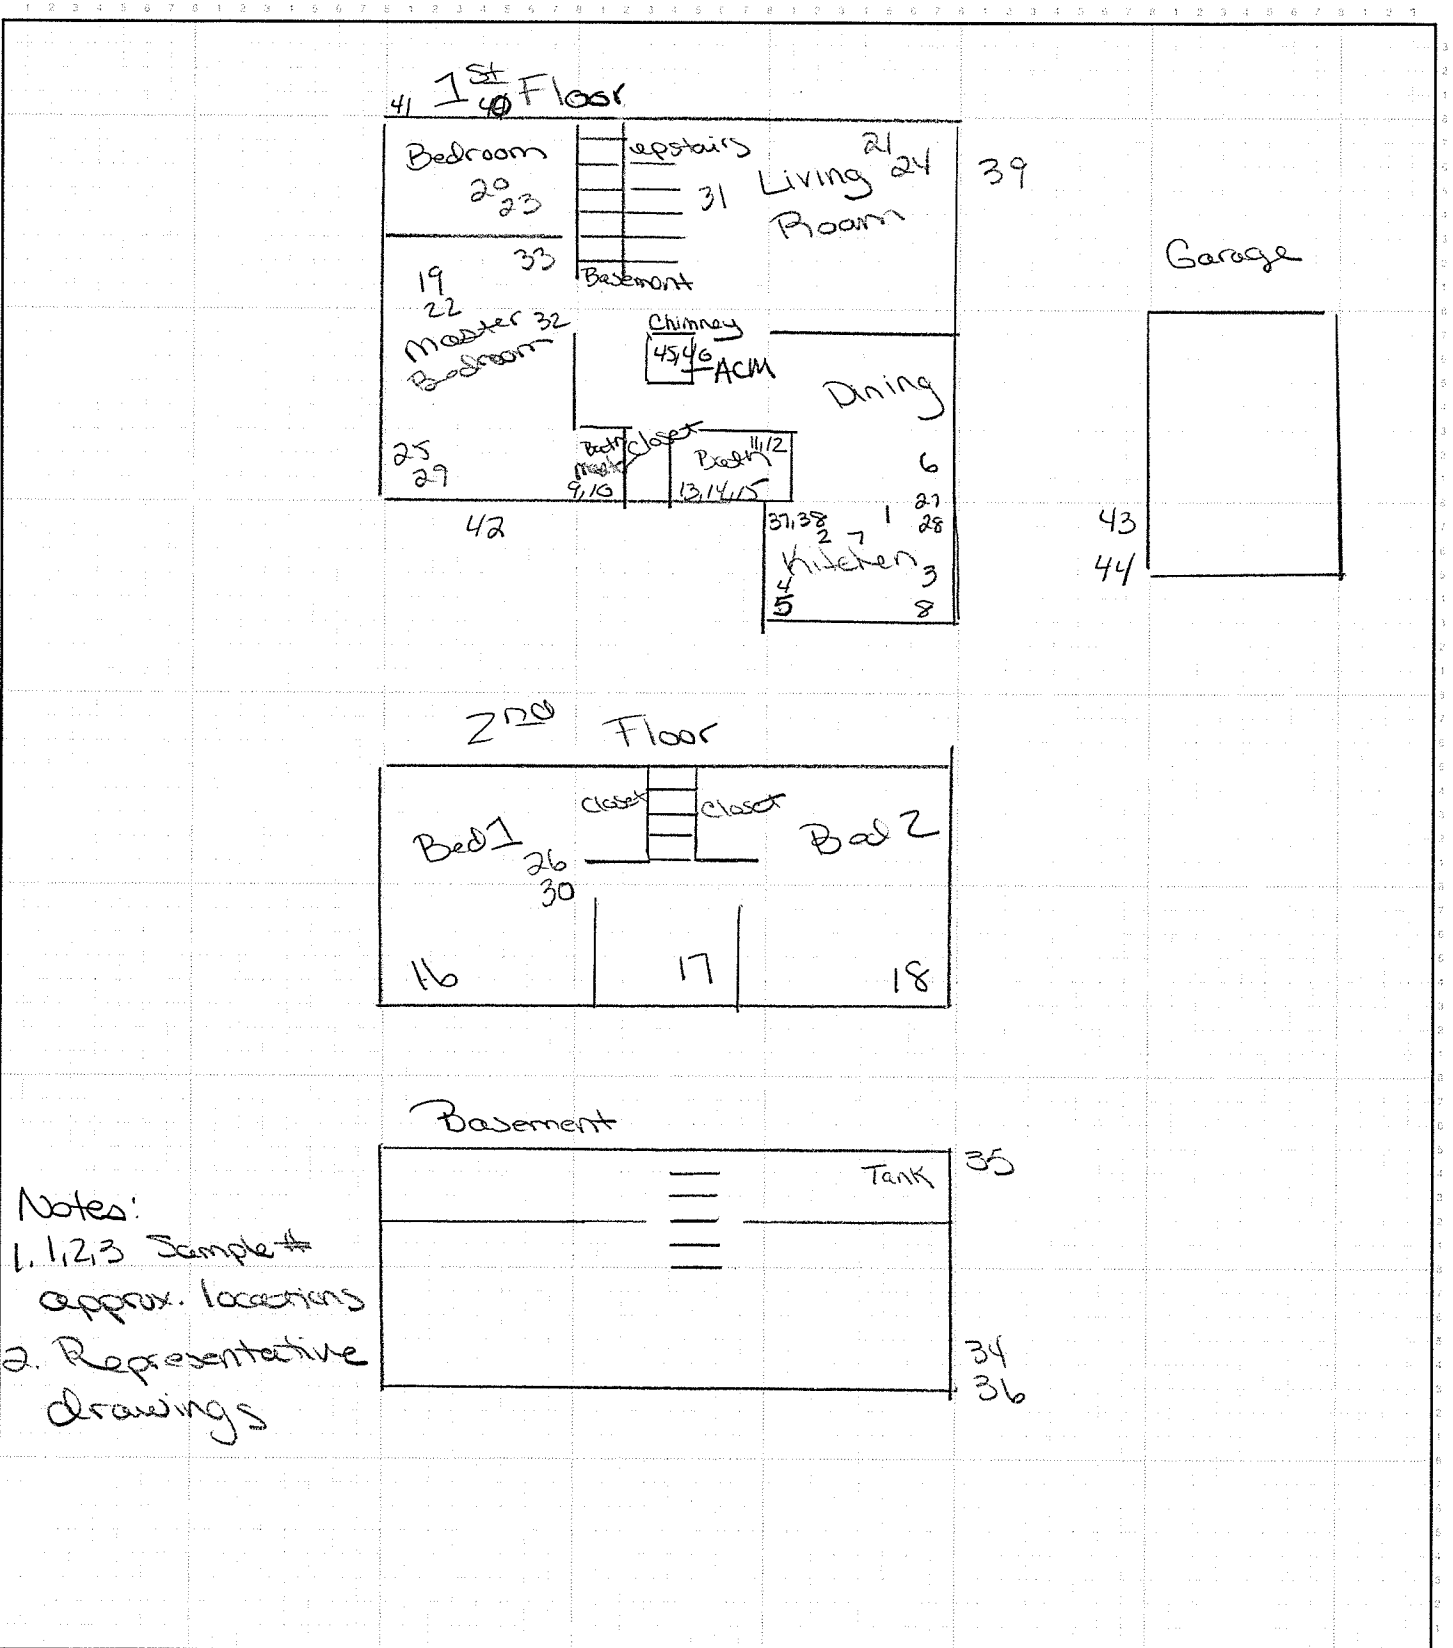 1st Floor
41 40
Bedroom
upstairs
21
24
39
20
23
31
Living
Room
33
Basement
Garage
19
22
Master 32
Bedroom
Chimney
45,46
ACM
Dining
25
29
Bath
Master
9,10
Closet
Bath 11,12
13,14,15
6
27
28
42
37,38
1
2 7
Kitchen
3
4
5
8
43
44
2nd Floor
Closet
Closet
Bed 1
Bed 2
26
30
16
17
18
Basement
Tank
35
34
36
Notes:
1. 1,2,3 Sample #
approx. locations
2. Representative
drawings